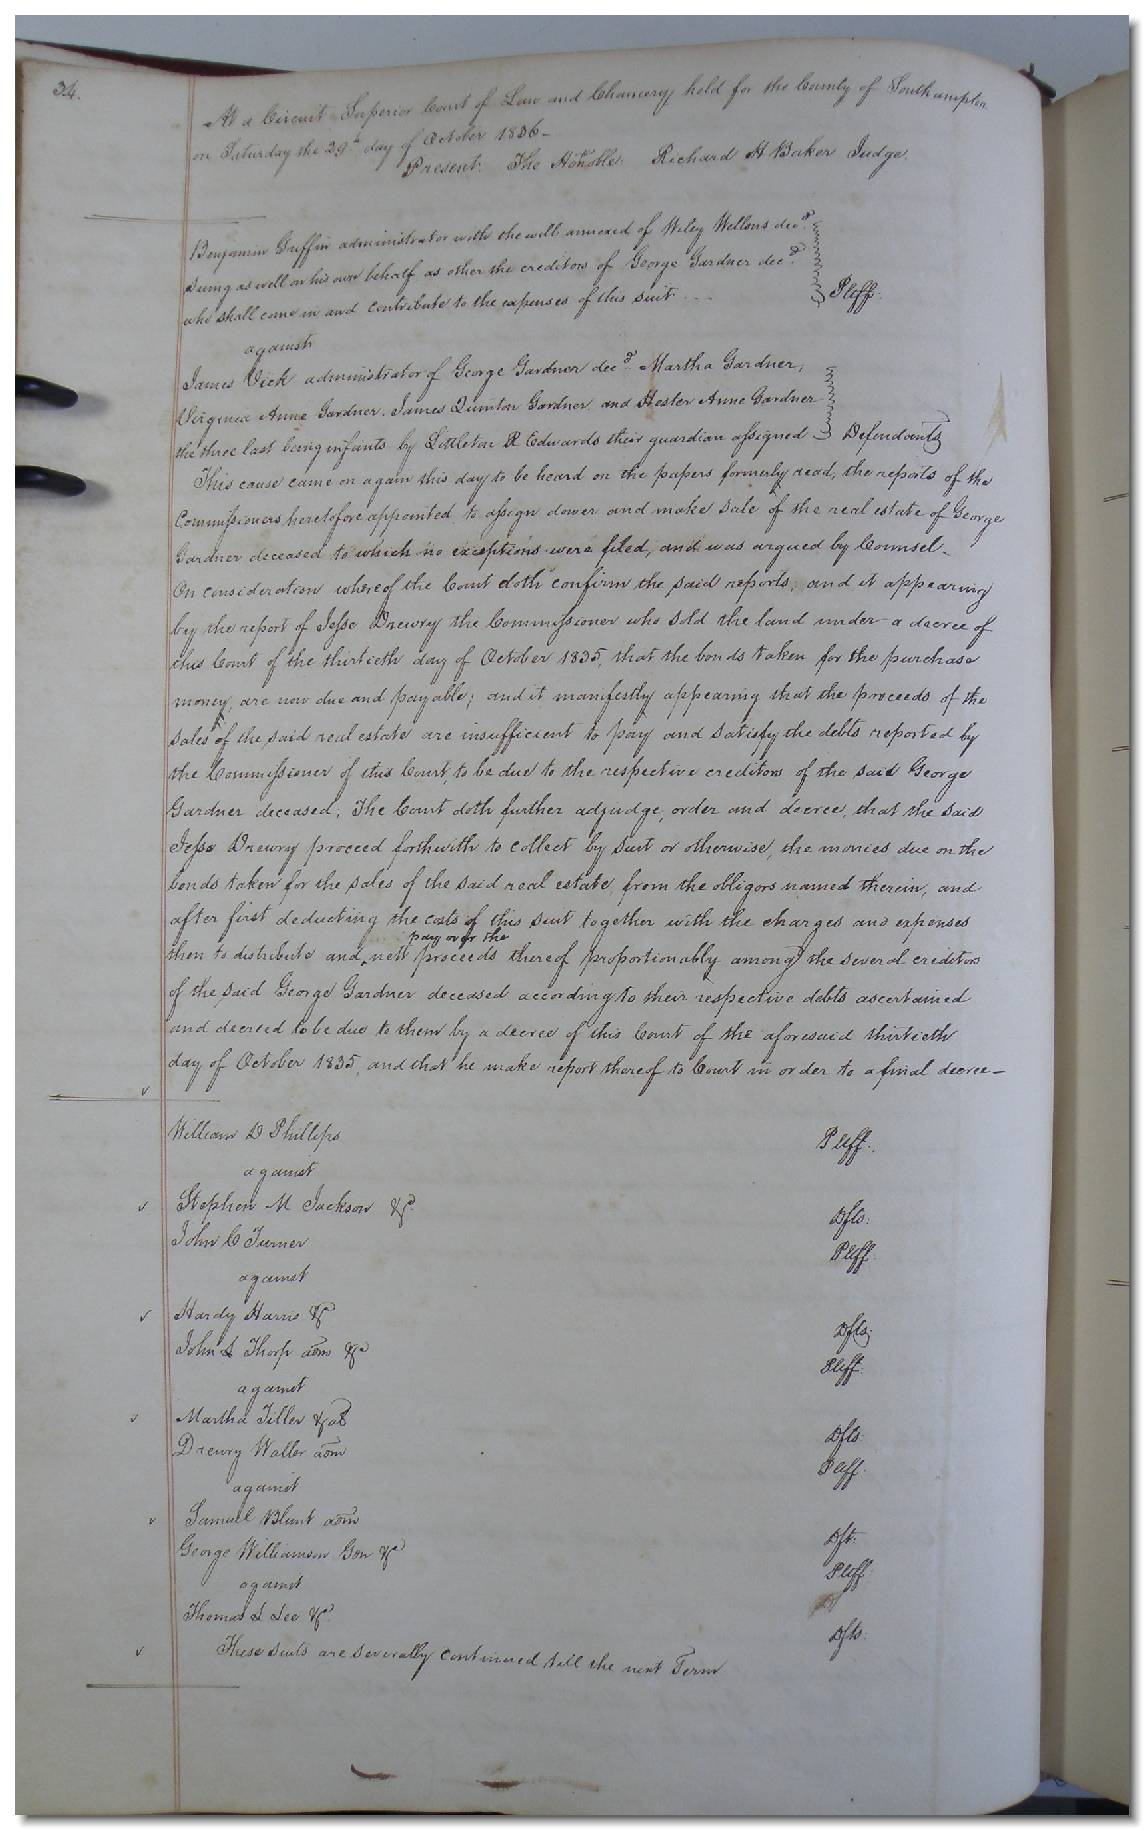 34.
At a Circuit Superior Court of Law and Chancery held for the County of Southampton
on Saturday the 29th day of October 1836 -
Present. The Honoble. Richard H Baker Judge.
Benjamin Griffin administrator with the will annexed of Wiley Wellons decd.
Suing as well on his own behalf as other the creditors of George Gardner decd.
who shall come in and contribute to the expenses of this suit .... Pltff.
against
James Vick administrator of George Gardner decd. Martha Gardner,
Virginia Anne Gardner. James Quinton Gardner and Hester Anne Gardner
the three last being infants by Littleton R Edwards their guardian assigned Defendants
This cause came on again this day to be heard on the papers formerly read, the reports of the
Commissioners heretofore appointed to assign dower and make sale of the real estate of George
Gardner deceased to which no exceptions were filed, and was argued by Counsel.
On consideration whereof the Court doth confirm the said reports, and it appearing
by the report of Jesse Drewry the Commissioner who sold the land under a decree of
this Court of the thirtieth day of October 1835, that the bonds taken for the purchase
money, are now due and payable; and it manifestly appearing that the proceeds of the
sales of the said real estate are insufficient to pay and satisfy the debts reported by
the Commissioner of this Court, to be due to the respective creditors of the said George
Gardner deceased; The Court doth further adjudge, order and decree, that the said
Jesse Drewry proceed forthwith to collect by suit or otherwise, the monies due on the
bonds taken for the sales of the said real estate, from the obligors named therein, and
after first deducting the costs of this suit together with the charges and expenses
pay over the
then to distribute and ‸ nett proceeds thereof proportionably among the several creditors
of the said George Gardner deceased according to their respective debts ascertained
and decreed to be due to them by a decree of this Court of the aforesaid thirtieth
day of October 1835, and that he make report thereof to Court in order to a final decree -
v
William D Phillips Pltff.
against
v Stephen M Jackson &c. Dfts.
John C Turner Pltff.
against
v Hardy Harris &c Dfts.
John L Thorp adm &c Pltff.
against
v Martha Tiller & al Dfts.
Drewry Waller adm Pltff.
against
v Samuel Blunt adm Dft.
George Williamson Gdn &c Pltff.
against
Thomas L Lee &c. Dfts.
v These suits are severally continued till the next Term